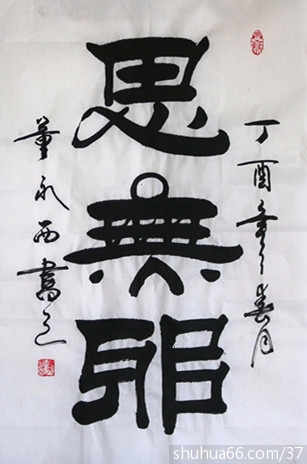 丁酉年春月
思無邪
董永西書之
shuhua66.com/37